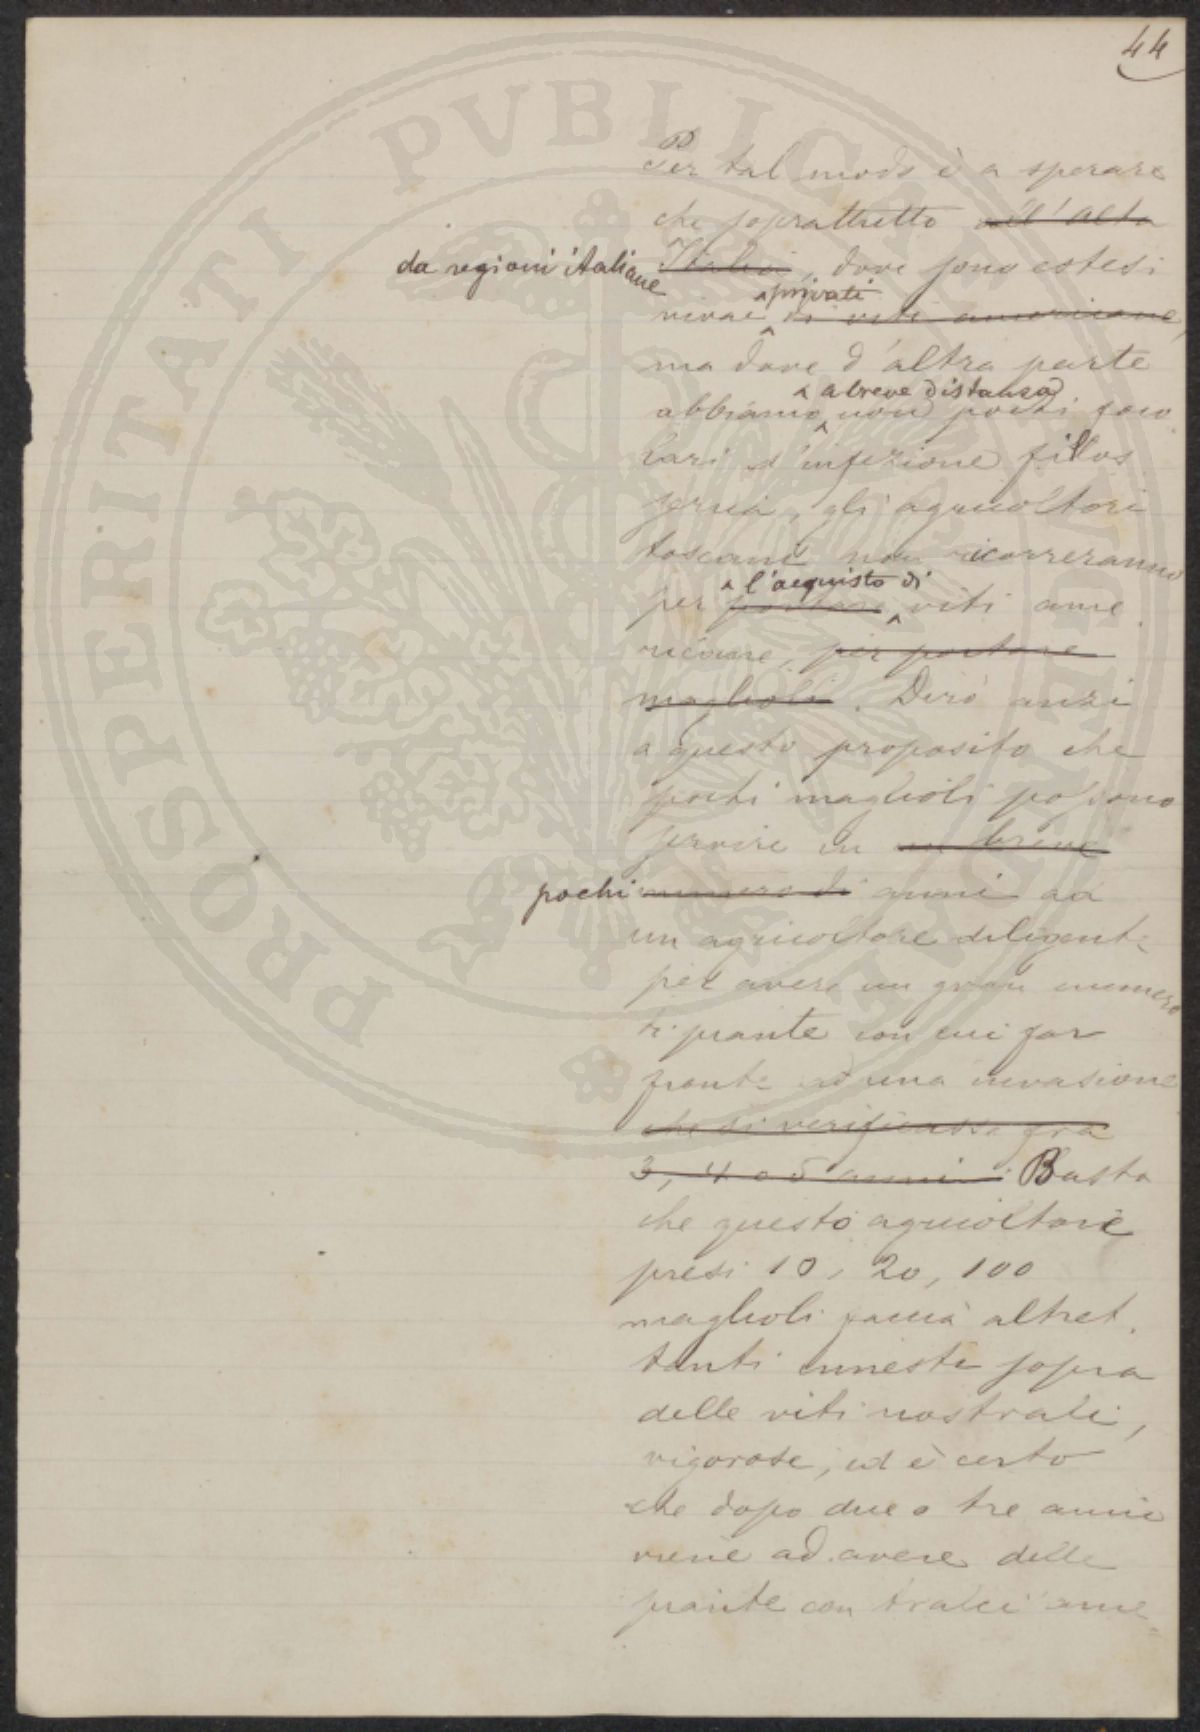 44
Per tal modo è a sperare
che soprattutto nell'alta
da regioni italiane Italia, dove sono estesi
privati
vivai di viti americane,
ma dove d'altra parte
a breve distanza
abbiamo non pochi foco
lari d'infezione fillos
serica, gli agricoltori
toscani non ricorreranno
l'acquisto di
per portare viti ame
ricane, per portare
maglioli. Dirò anzi
a questo proposito che
pochi maglioli possono
servire in un breve
pochi numero di anni ad
un agricoltore diligente
per avere un gran numero
di piante con cui far
fronte ad una invasione
che si verificasse fra
3, 4 o 5 anni. Basta
che questo agricoltore
presi 10, 20, 100
maglioli faccia altret
tanti innesti sopra
delle viti nostrali,
vigorose, ed è certo
che dopo due o tre anni
viene ad avere delle
piante con tralci ame=
PROSPERITATI PVBLICAE AVGENDAE